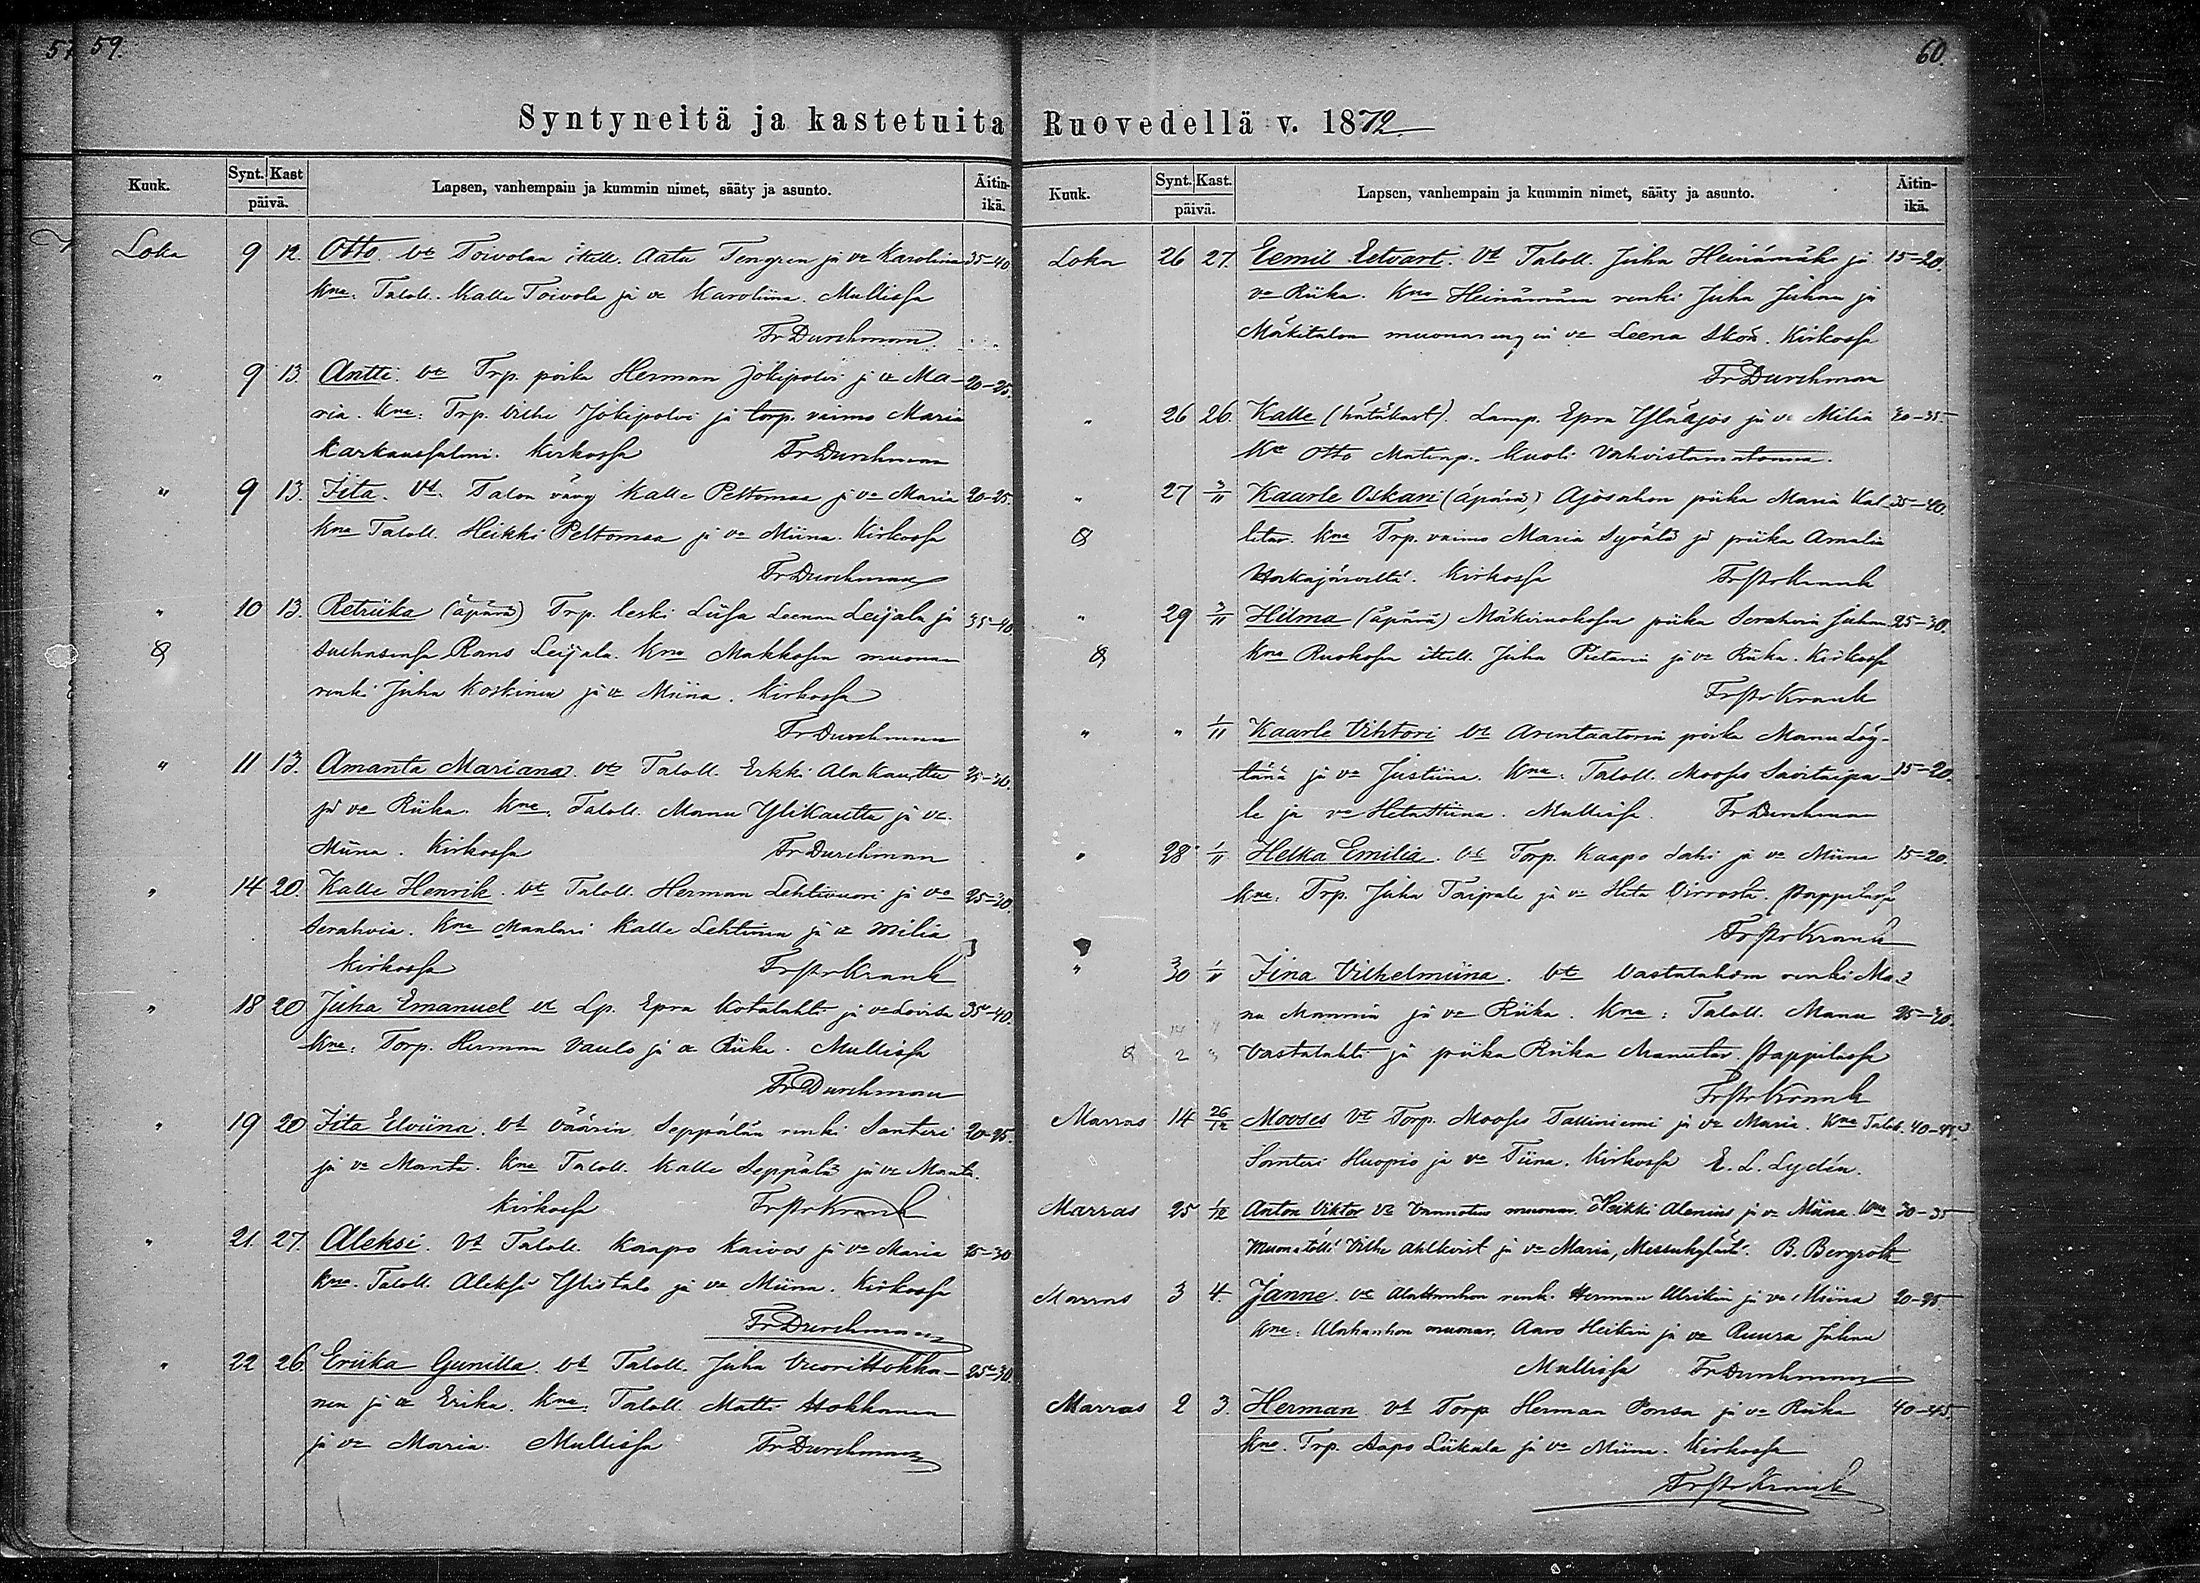 59.
Syntyneitä ja kastetuita
Kuuk. Synt. Kast päivä. Lapsen, vanhempain ja kummin nimet, sääty ja asunto. Äitin-ikä.
Loka 9 12. Otto. vt Toivolan itell. Aatu Tengren ja va Karolina 35-40
Kna: Taloll. Kalle Toivola ja va Karoliina. Mullissa
Fr Durchman
" 9 13. Antti. vt Trp. poika Herman Jokipolvi ja va Ma- 20-25.
ria. Kna: Trp. Vilhe Jokipolvi ja torp. vaimo Maria
Karkaussalmi. Kirkossa Fr Durchman
" 9 13. Iita. Vt. Talon vävy Kalle Peltomaa ja va Maria 20-25.
Kna Taloll. Heikki Peltomaa ja va Miina. Kirkossa
Fr Durchman
" 10 13. Retriika (äpärä) Trp. leski Liisa Leenan Leijala ja 35-40
Rans Leijala. Kna Makkosen muonan
renki Juha Koskinen ja va Miina. Kirkossa
Fr Durchman
" 11 13. Amanta Mariana. vt Taloll. Erkki Alakautta 25-30.
ja va Riika. Kna. Taloll. Manu Ylikautta ja va
Miina. Kirkossa Fr Durchman
" 14 20. Kalle Henrik. vt Taloll. Herman Lehtivuori ja va 25-30.
Serahvia. Kna Maalari Kalle Lehtinen ja va Milia
Kirkossa Fr str Krank
" 18 20 Juha Emanuel vt Lp. Epra Kotalahti ja va Lovisa 35-40.
Kna: Torp. Herman Vaulo ja va Riika. Mullissa
Fr Durchman
" 19 20 Iita Elviina. vt Väärin Seppälän renki Santeri 20-25
ja va Manta. Kna Taloll. Kalle Seppälä ja va Manta.
Kirkossa Fr str Krank
" 21. 27. Aleksi. Vt Taloll. Kaapo Kaivos ja va Maria 25-30
Kna. Taloll. Aleksi Ylistalo ja va Miina. Kirkossa
Fr Durchman
" 22 26. Eriika Gunilla. Vt Taloll. Juha VuoriHokka- 25-30.
nen ja va Erika. Kna. Taloll. Matti Hokkanen
ja va Maria. Mullissa Fr Durchman
60.
Ruovedellä v. 1872
Kuuk. Synt. Kast. päivä. Lapsen, vanhempain ja kummin nimet, sääty ja asunto. Äitin-ikä.
Loka 26 27. Eemil Eetvart. Vt Taloll. Juha Heinämäki ja 15-20.
va Riika. Kna Heinämäen renki Juha Juhan ja
Mäkitalon muonarengin va Leena Skön. Kirkossa
Fr Durchman
" 26 26. Kalle (hätäkast). Lamp. Epra Yläajos ja va Milia 30-35
Kna Otto Matinp. Kuoli vahvistamatonna.
" 27 3/11 Kaarle Oskari (äpärä) Ajosahon piika Maria Kal- 35-40.
letar. Kna Trp. vaimo Maria Syvälä ja piika Amalia
Kirkossa Fr str Krank
" 29 3/11 Hilma (äpärä) Mäkiruokosen piika Serahvia Juhan 25-30.
Kna Ruokosen itell. Juha Pietarin ja va Riika. Kirkossa
Fr str Krank
" " 1/11 Kaarle Vihtori vt Arentaatorin poika Manu Löy-
tänä ja va Justiina. Kna: Taloll. Mooses Savitaipa- 15-20.
le ja va HetaStiina. Mullissa. Fr Durchman
" 28 1/11 Helka Emilia. Vt Torp. Kaapo Sahi ja va Miina 15-20.
Kna: Trp. Juha Taipale ja va Heta Virroista. Pappilassa
Fr str Krank
" 30 1/11 Iina Vilhelmiina. Vt Vastalahden renki Ma-
nu Mannin ja va Riika. Kna: Taloll. Manu 25-30.
Vastalahti ja piika Riika Manutar. Pappilassa
Fr str Krank
Marras 14 26/12 Mooses Vt Torp. Mooses Talliniemi ja va Maria. Kna Talol. 40-45
Santeri Huopio ja va Tiina. Kirkossa E. L. Lydén.
Marras 25 1/12 Anton Viktor Vt muonar. Heikki Alenius ja va Miina. Kna 30-35
Vilhe Ahlkvist ja va Maria, Messukylästä. B. Bergroth
Marras 3 4. Janne. vt Alahanhon renki Herman Ulrikin ja va Miina 20-25
Kna: Alahanhon muonar. Aaro Heikin ja va Ruusa Juhan
Mullissa Fr Durchman
Marras 2 3. Herman. Vt Torp Herman Ponsa ja va Riika 40-45.
Kna. Trp. Aapo Liikala ja va Miina. Kirkossa
Fr str Krank